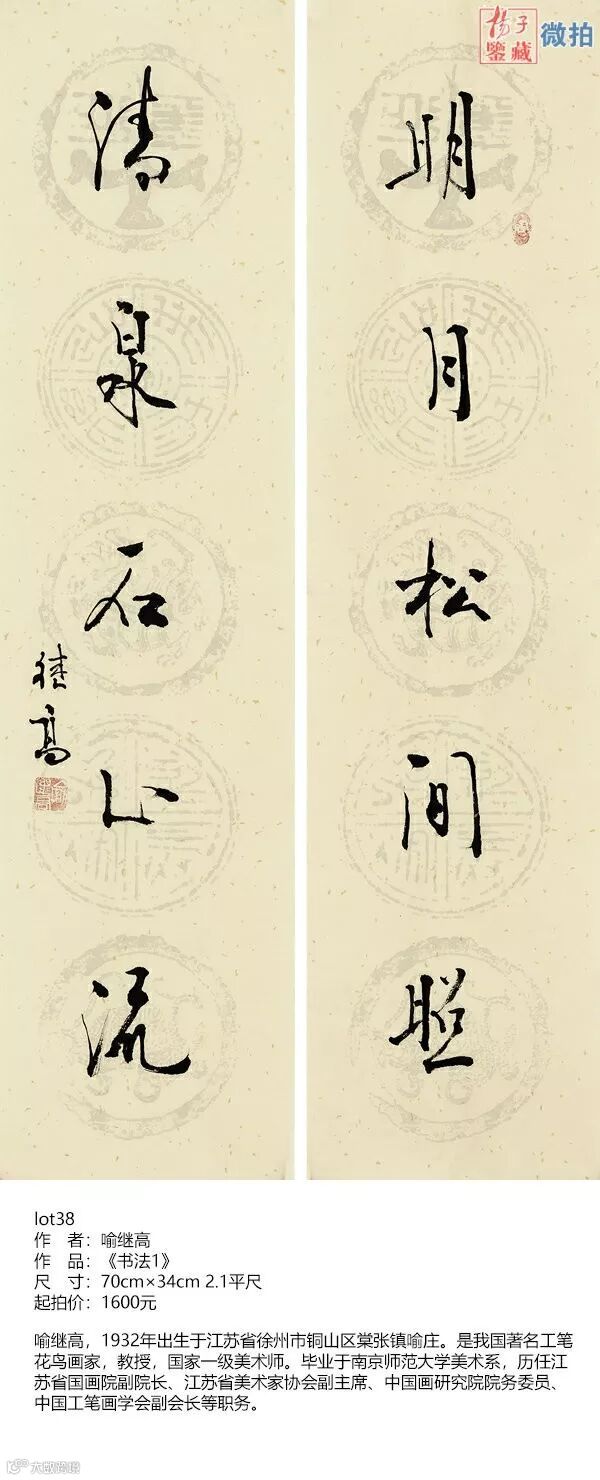 扬子
鑒藏
微拍
明月松间照
清泉石上流
继高
lot38
作 者：喻继高
作 品：《书法1》
尺 寸：70cm×34cm 2.1平尺
起拍价：1600元
喻继高，1932年出生于江苏省徐州市铜山区棠张镇喻庄。是我国著名工笔
花鸟画家，教授，国家一级美术师。毕业于南京师范大学美术系，历任江
苏省国画院副院长、江苏省美术家协会副主席、中国画研究院院务委员、
中国工笔画学会副会长等职务。
大数跨境